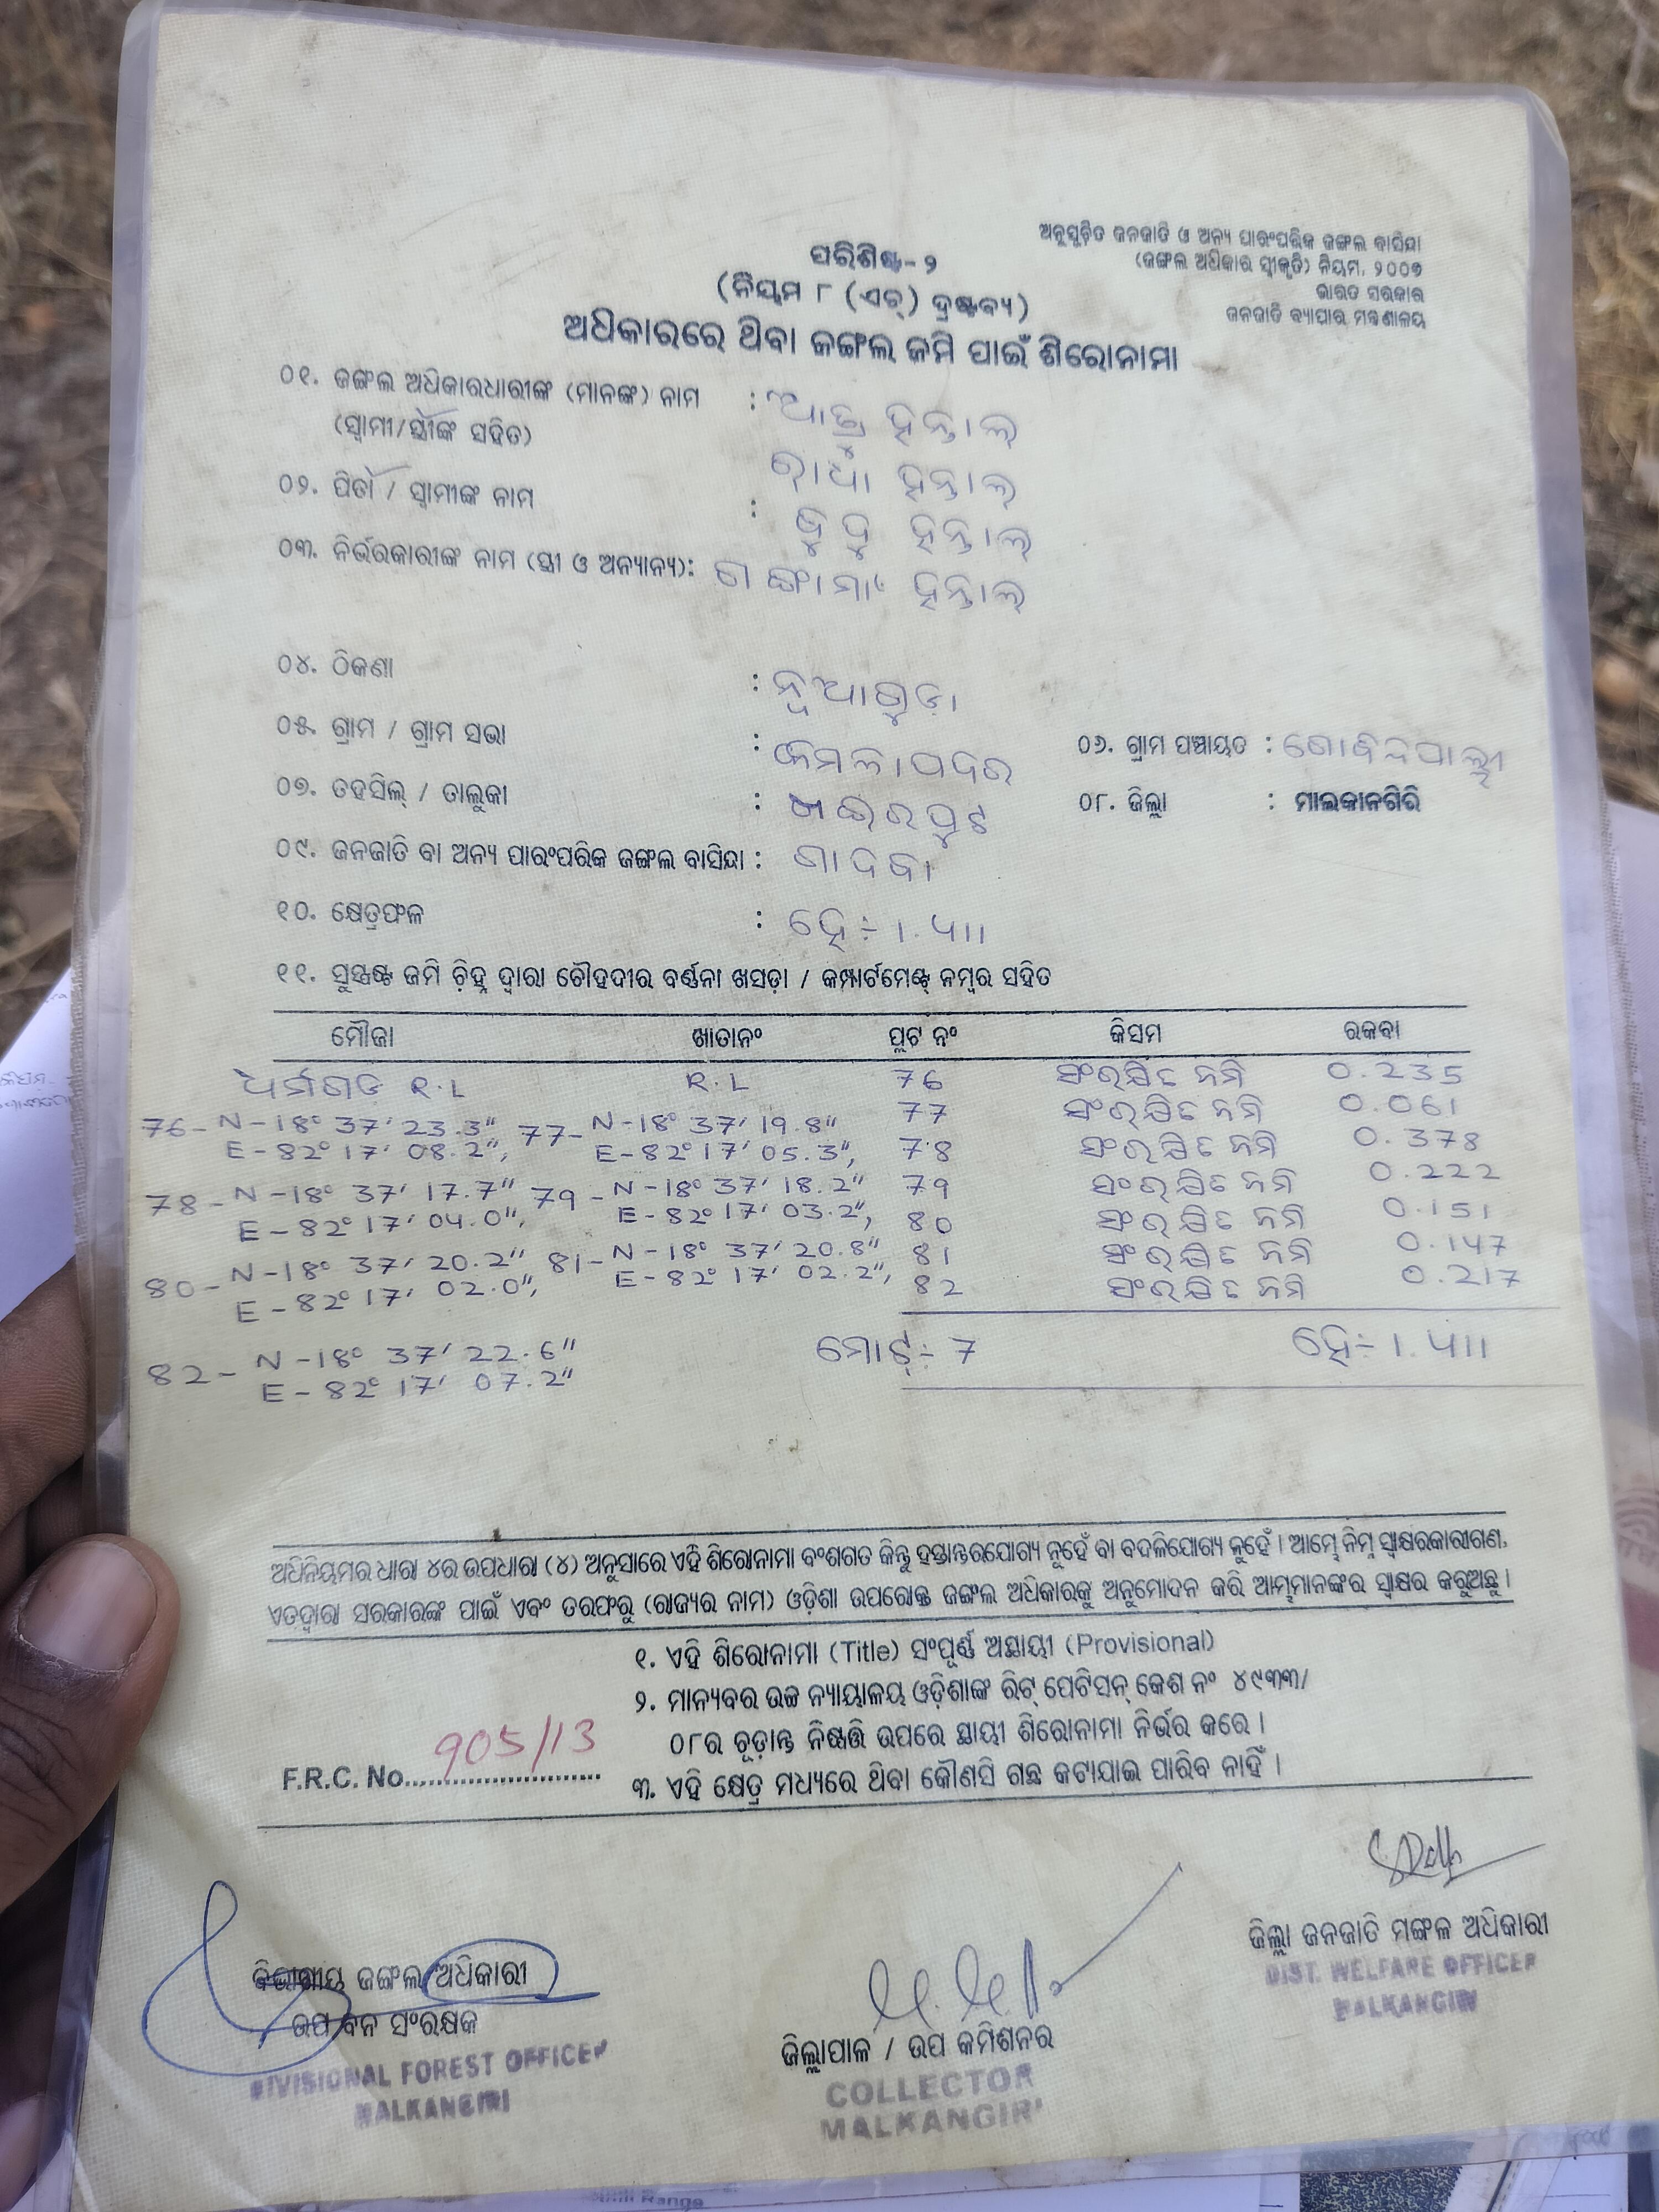 ଅନୁସୂଚିତ ଜନଜାତି ଓ ଅନ୍ୟ ପାରଂପରିକ ଜଙ୍ଗଲ ବାସିନ୍ଦା
(ଜଙ୍ଗଲ ଅଧିକାର ସ୍ୱୀକୃତି) ନିୟମ, ୨୦୦୭
ଭାରତ ସରକାର
ଜନଜାତି ବ୍ୟାପାର ମନ୍ତ୍ରଣାଳୟ
ପରିଶିଷ୍ଟ-୨
(ନିୟମ ୮ (ଏଚ୍) ଦ୍ରଷ୍ଟବ୍ୟ)
ଅଧିକାରରେ ଥିବା ଜଙ୍ଗଲ ଜମି ପାଇଁ ଶିରୋନାମା
୦୧. ଜଙ୍ଗଲ ଅଧିକାରଧାରୀଙ୍କ (ମାନଙ୍କ) ନାମ : ହନ୍ତାଲ୍
(ସ୍ୱାମୀ/ସ୍ତ୍ରୀଙ୍କ ସହିତ) ରାଧା ହନ୍ତାଲ୍
୦୨. ପିତା / ସ୍ୱାମୀଙ୍କ ନାମ : ହନ୍ତାଲ୍
୦୩. ନିର୍ଭରକାରୀଙ୍କ ନାମ (ସ୍ତ୍ରୀ ଓ ଅନ୍ୟାନ୍ୟ): ହନ୍ତାଲ୍
୦୪. ଠିକଣା : ନୂଆଗୁଡା
୦୫. ଗ୍ରାମ / ଗ୍ରାମ ସଭା : କମଳାପଦର
୦୬. ଗ୍ରାମ ପଞ୍ଚାୟତ : ଗୋବିନ୍ଦପାଲ୍ଲୀ
୦୭. ତହସିଲ୍ / ତାଲୁକା : ଖଇରପୁଟ
୦୮. ଜିଲ୍ଲା : ମାଲକାନଗିରି
୦୯. ଜନଜାତି ବା ଅନ୍ୟ ପାରଂପରିକ ଜଙ୍ଗଲ ବାସିନ୍ଦା : ଗାଦବା
୧୦. କ୍ଷେତ୍ରଫଳ : ହେ÷ ୧.୪୧୧
୧୧. ସୁସ୍ପଷ୍ଟ ଜମି ଚିହ୍ନ ଦ୍ୱାରା ଚୌହଦୀର ବର୍ଣ୍ଣନା ଖସଡ଼ା / କମ୍ପାର୍ଟମେଣ୍ଟ୍ ନମ୍ବର ସହିତ
ମୌଜା ଖାତାନଂ ପ୍ଲଟ ନଂ କିସମ ରକବା
ଧର୍ମଗଡ R.L R.L 76 ସଂରକ୍ଷିତ ଜମି 0.235
76- N-18° 37' 23.3" 77- N-18° 37' 19.8" 77 ସଂରକ୍ଷିତ ଜମି 0.061
E-82° 17' 08.2", E-82° 17' 05.3", 78 ସଂରକ୍ଷିତ ଜମି 0.378
78- N-18° 37' 17.7" 79- N-18° 37' 18.2" 79 ସଂରକ୍ଷିତ ଜମି 0.222
E-82° 17' 04.0", E-82° 17' 03.2", 80 ସଂରକ୍ଷିତ ଜମି 0.151
80- N-18° 37' 20.2" 81- N-18° 37' 20.8" 81 ସଂରକ୍ଷିତ ଜମି 0.147
E-82° 17' 02.0", E-82° 17' 02.2", 82 ସଂରକ୍ଷିତ ଜମି 0.217
82- N-18° 37' 22.6" ମୋଟ୍÷ 7 ହେ÷ ୧.୪୧୧
E-82° 17' 07.2"
ଅଧିନିୟମର ଧାରା ୪ର ଉପଧାରା (୪) ଅନୁସାରେ ଏହି ଶିରୋନାମା ବଂଶଗତ କିନ୍ତୁ ହସ୍ତାନ୍ତରଯୋଗ୍ୟ ନୁହେଁ ବା ବଦଳିଯୋଗ୍ୟ ନୁହେଁ । ଆମ୍ଭେ ନିମ୍ନ ସ୍ୱାକ୍ଷରକାରୀଗଣ,
ଏତଦ୍ଦ୍ୱାରା ସରକାରଙ୍କ ପାଇଁ ଏବଂ ତରଫରୁ (ରାଜ୍ୟର ନାମ) ଓଡ଼ିଶା ଉପରୋକ୍ତ ଜଙ୍ଗଲ ଅଧିକାରକୁ ଅନୁମୋଦନ କରି ଆମ୍ଭମାନଙ୍କର ସ୍ୱାକ୍ଷର କରୁଅଛୁ ।
୧. ଏହି ଶିରୋନାମା (Title) ସଂପୂର୍ଣ୍ଣ ଅସ୍ଥାୟୀ (Provisional)
୨. ମାନ୍ୟବର ଉଚ୍ଚ ନ୍ୟାୟାଳୟ ଓଡ଼ିଶାଙ୍କ ରିଟ୍ ପେଟିସନ୍ କେଶ ନଂ ୪୯୩୩/
୦୮ର ଚୂଡ଼ାନ୍ତ ନିଷ୍ପତ୍ତି ଉପରେ ସ୍ଥାୟୀ ଶିରୋନାମା ନିର୍ଭର କରେ ।
F.R.C. No. 905/13
୩. ଏହି କ୍ଷେତ୍ର ମଧ୍ୟରେ ଥିବା କୌଣସି ଗଛ କଟାଯାଇ ପାରିବ ନାହିଁ ।
ବିଭାଗୀୟ ଜଙ୍ଗଲ ଅଧିକାରୀ
ଉପ ବନ ସଂରକ୍ଷକ
DIVISIONAL FOREST OFFICER
MALKANGIRI
ଜିଲ୍ଲାପାଳ / ଉପ କମିଶନର
COLLECTOR
MALKANGIRI
ଜିଲ୍ଲା ଜନଜାତି ମଙ୍ଗଳ ଅଧିକାରୀ
DIST. WELFARE OFFICER
MALKANGIRI
Range